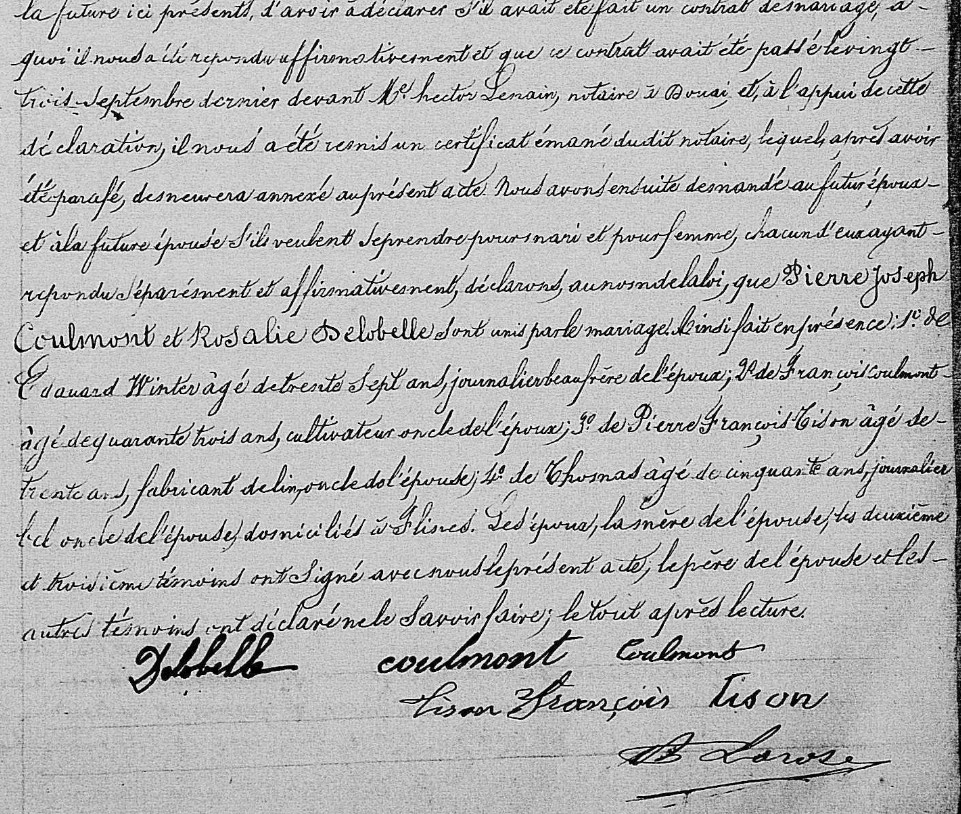 la future ici présents, d'avoir à déclarer s'il avait été fait un contrat de mariage, à
quoi il nous a été répondu affirmativement et que ce contrat avait été passé le vingt-
trois Septembre dernier devant Me hector Lenain, notaire à Douai, et, à l'appui de cette
déclaration, il nous a été remis un certificat émané dudit notaire, lequel, après avoir
été parafé, demeurera annexé au présent acte. Nous avons ensuite demandé au futur époux
et à la future épouse s'ils veulent se prendre pour mari et pour femme, chacun d'eux ayant
répondu Séparément et affirmativement, déclarons, au nom de la loi, que Pierre Joseph
Coulmont et Rosalie Delobelle sont unis par le mariage. Ainsi fait en présence: 1º de
Edouard Winter âgé de trente Sept ans, journalier beau frère de l'époux; 2º de François Coulmont
âgé de quarante trois ans, cultivateur oncle de l'époux; 3º de Pierre François Tison âgé de
trente ans, fabricant de lin, oncle de l'épouse; 4º de Thomas âgé de cinquante ans, journalier
bel oncle de l'épouse, domiciliés à Flines. Les époux, la mère de l'épouse, les deuxième
et troisième témoins ont Signé avec nous le présent acte, le père de l'épouse et les
autres témoins ont déclaré ne le Savoir faire; le tout après lecture.
Delobelle coulmont Coulmont
Tison François tison
Larose